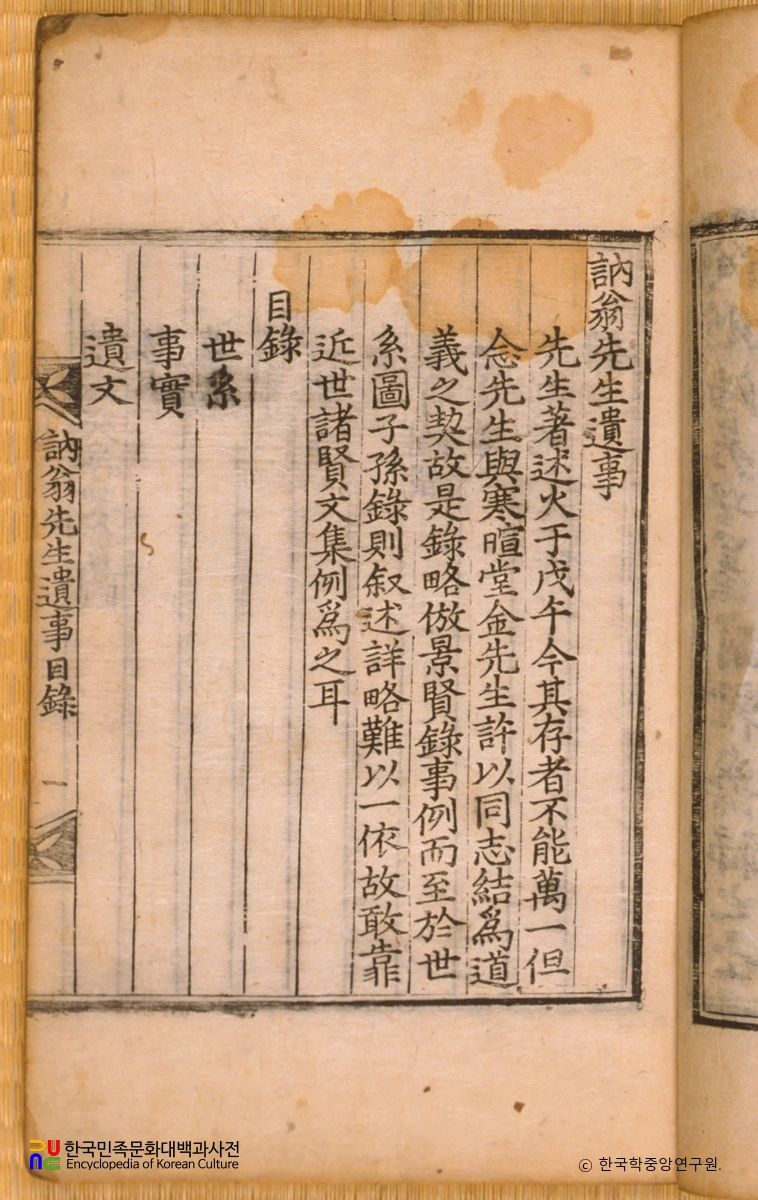 訥翁先生遺事
先生著述火于戊午今其存者不能萬一但
念先生與寒暄堂金先生許以同志結爲道
義之契故是錄略倣景賢錄事例而至於世
系圖子孫錄則叙述詳略難以一依故敢靠
近世諸賢文集例爲之耳
目錄
世系
事實
遺文
訥翁先生遺事目錄 一
한국민족문화대백과사전
Encyclopedia of Korean Culture
© 한국학중앙연구원.